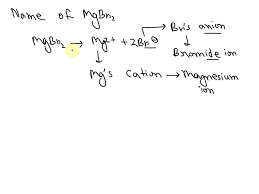 Name of MgBr2
MgBr2 → Mg2+ + 2Br⊖ → Br's anion
↓
Bromide ion
↓
Mg's Cation → Magnesium
ion